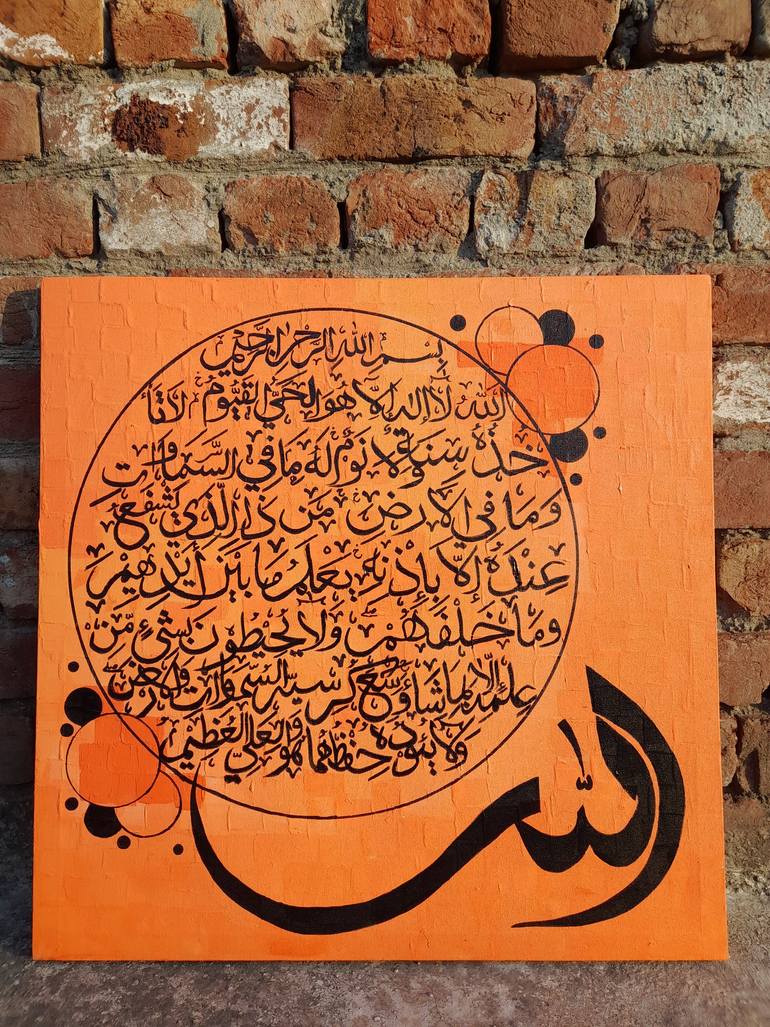 بِسْمِ اللهِ الرَّحْمٰنِ الرَّحِيْمِ
اَللهُ لَآ اِلٰهَ اِلَّا هُوَ الْحَيُّ الْقَيُّوْمُ لَا تَأْ
خُذُهٗ سِنَةٌ وَّلَا نَوْمٌ لَهٗ مَا فِي السَّمَاوَاتِ
وَمَا فِي الْاَرْضِ مَنْ ذَا الَّذِيْ يَشْفَعُ
عِنْدَهٗ اِلَّا بِاِذْنِهٖ يَعْلَمُ مَا بَيْنَ اَيْدِيْهِمْ
وَمَا خَلْفَهُمْ وَلَا يُحِيْطُوْنَ بِشَيْءٍ مِّنْ
عِلْمِهٖ اِلَّا بِمَا شَاءَ وَسِعَ كُرْسِيُّهُ السَّمٰوَاتِ وَالْاَرْضَ
وَلَا يَئُوْدُهٗ حِفْظُهُمَا وَهُوَ الْعَلِيُّ الْعَظِيْمُ
الله